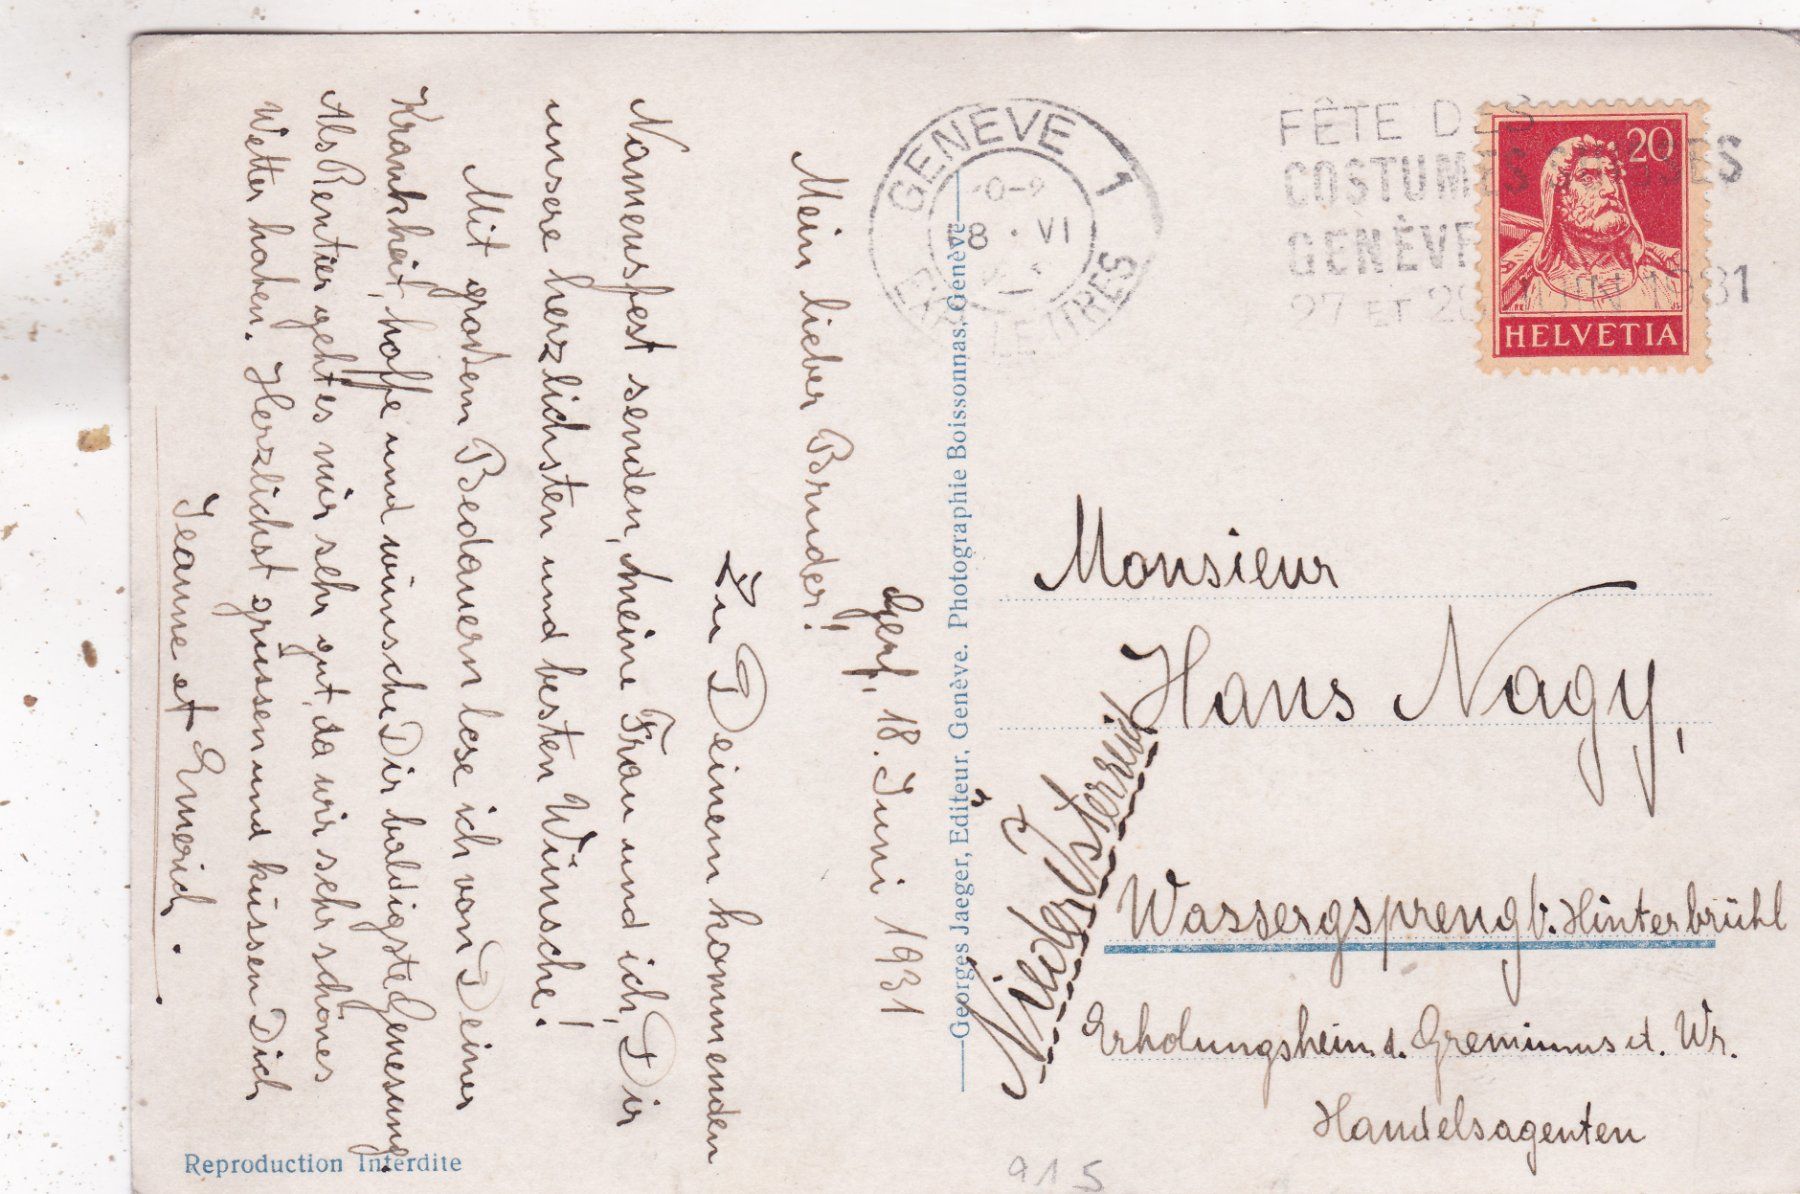 Genf, 18. Juni 1931
Mein lieber Bruder!
Zu Deinem kommenden
Namensfest senden, meine Frau und ich, Dir
unsere herzlichsten und besten Wünsche!
Mit grostem Bedauern lese ich von Deiner
Krankheit, hoffe und wünsche Dir baldigste Genesung.
Als Rentier geht es mir sehr gut, da wir sehr schönes
Wetter haben. Herzlichst grüssen und küssen Dich
Jeanne et Emerich.
Reproduction Interdite
Georges Jaeger, Editeur, Genève. Photographie Boissonnas, Genève
GENÈVE 1
18 · VI
EXP. LETTRES
FÊTE DES
COSTUMES SUISSES
GENÈVE
27 ET 28 JUIN 1931
20
HELVETIA
Monsieur
Hans Nagy,
Wassergspreng b. Hinterbrühl
Nieder Österreich
Erholungsheim d. Gremiums d. Wr.
Handelsagenten
915